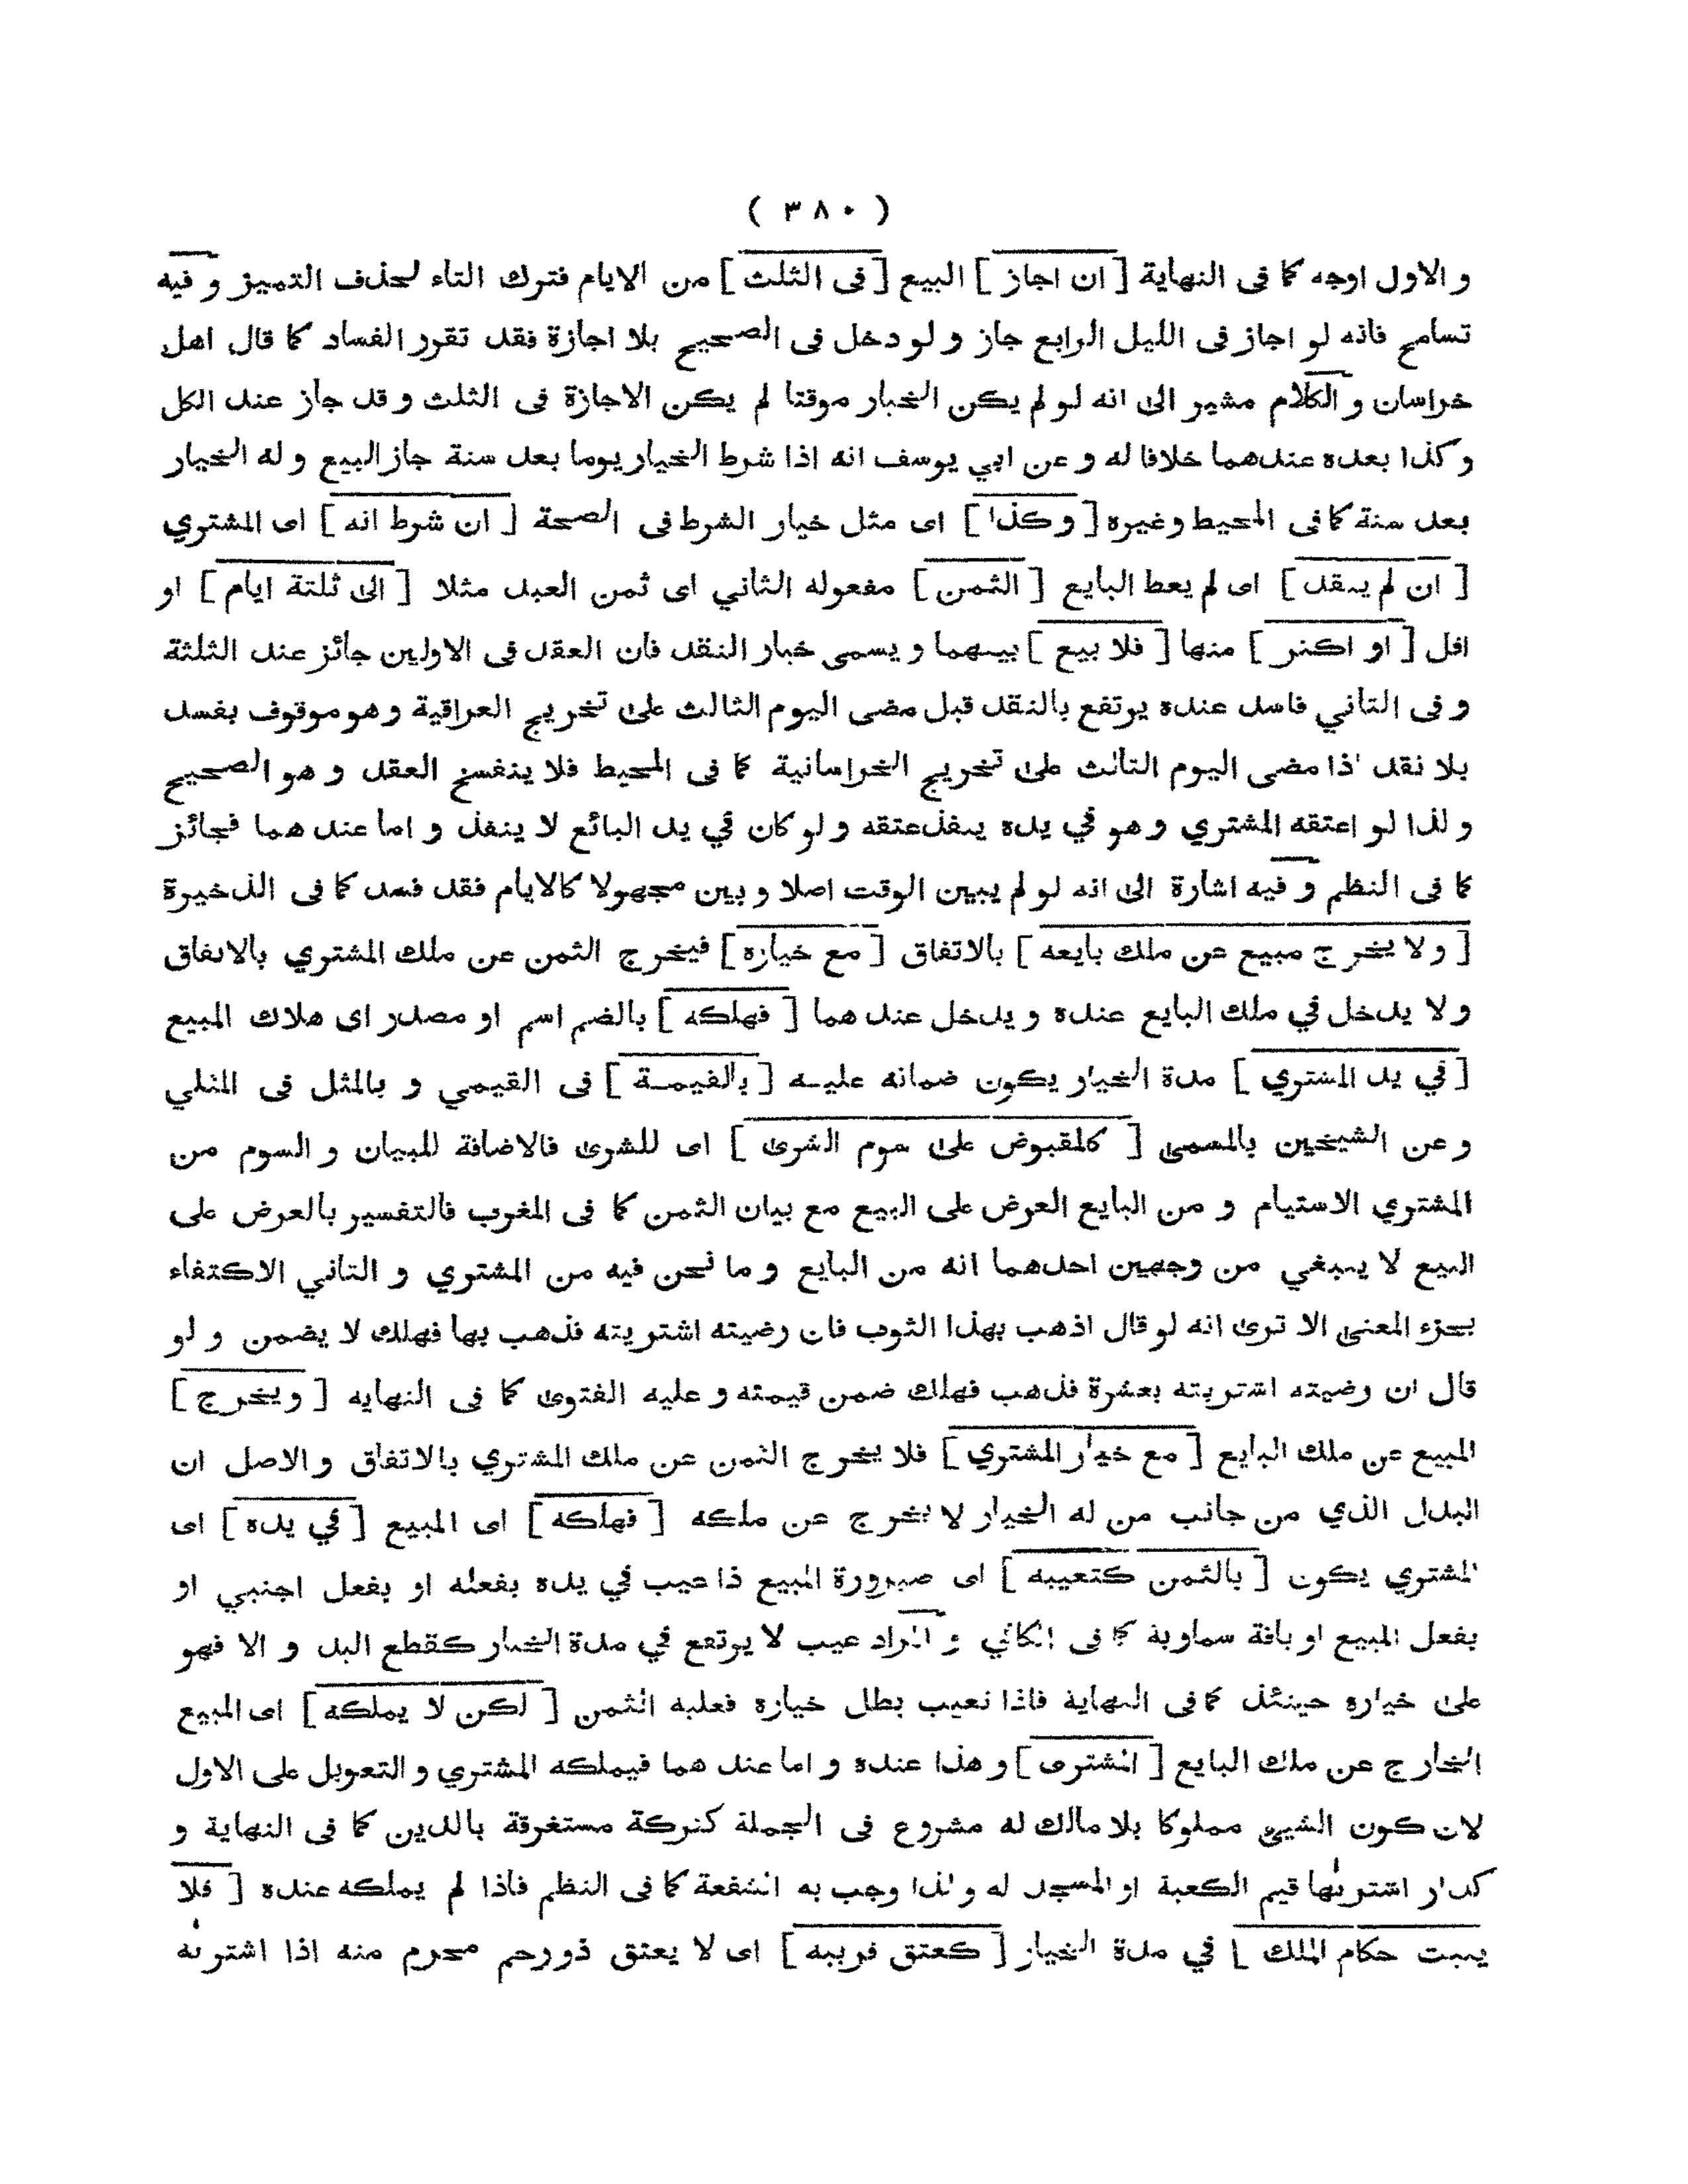 ( ٣٨٠ )
و الاول اوجه كما فى النهاية [ ان اجاز ] البيع [ فى الثلث ] من الايام فترك التاء لحذف التميز و فيه
تسامح فانه لو اجاز فى الليل الرابع جاز و لو دخل فى الصحيح بلا اجازة فقد تقرر الفساد كما قال اهل
خراسان و الكلام مشير الى انه لو لم يكن الخيار موقتا لم يكن الاجازة فى الثلث و قد جاز عند الكل
و كذا بعده عندهما خلافا له و عن ابي يوسف انه اذا شرط الخيار يوما بعد سنة جاز البيع و له الخيار
بعد سنة كما فى المحيط و غيره [ و كذا ] اى مثل خيار الشرط فى الصحة [ ان شرط انه ] اى المشتري
[ ان لم ينقد ] اى لم يعط البايع [ الثمن ] مفعوله الثاني اى ثمن العبد مثلا [ الى ثلثة ايام ] او
اقل [ او اكثر ] منها [ فلا بيع ] بينهما و يسمى خيار النقد فان العقد فى الاولين جائز عند الثلثة
و فى الثاني فاسد عنده يرتفع بالنقد قبل مضى اليوم الثالث على تخريج العراقية و هو موقوف يفسد
بلا نقد اذا مضى اليوم الثالث على تخريج الخراسانية كما فى المحيط فلا ينفسخ العقد و هو الصحيح
و لذا لو اعتقه المشتري و هو في يده ينفذ عتقه و لو كان في يد البائع لا ينفذ و اما عند هما فجائز
كما فى النظم و فيه اشارة الى انه لو لم يبين الوقت اصلا و بين مجهولا كالايام فقد فسد كما فى الذخيرة
[ و لا يخرج مبيع عن ملك بايعه ] بالاتفاق [ مع خياره ] فيخرج الثمن عن ملك المشتري بالاتفاق
و لا يدخل في ملك البايع عنده و يدخل عند هما [ فهلكه ] بالضم اسم او مصدر اى هلاك المبيع
[ في يد المشتري ] مدة الخيار يكون ضمانه عليه [ بالقيمة ] فى القيمي و بالمثل فى المثلي
و عن الشيخين بالمسمى [ كالمقبوض على سوم الشرى ] اى للشرى فالاضافة للبيان و السوم من
المشتري الاستيام و من البايع العرض على البيع مع بيان الثمن كما فى المغرب فالتفسير بالعرض على
البيع لا ينبغي من وجهين احدهما انه من البايع و ما نحن فيه من المشتري و الثاني الاكتفاء
بجزء المعنى الا ترى انه لو قال اذهب بهذا الثوب فان رضيته اشتريته فذهب بها فهلك لا يضمن و لو
قال ان رضيته اشتريته بعشرة فذهب فهلك ضمن قيمته و عليه الفتوى كما فى النهايه [ و يخرج ]
المبيع عن ملك البايع [ مع خيار المشتري ] فلا يخرج الثمن عن ملك المشتري بالاتفاق و الاصل ان
البدل الذي من جانب من له الخيار لا يخرج عن ملكه [ فهلكه ] اى المبيع [ في يده ] اى
المشتري يكون [ بالثمن كتعيبه ] اى صيرورة المبيع ذا عيب في يده بفعله او بفعل اجنبي او
بفعل المبيع او بافة سماوية كما فى الكافي و المراد عيب لا يرتفع في مدة الخيار كقطع اليد و الا فهو
على خياره حينئذ كما فى النهاية فاذا تعيب بطل خياره فعليه الثمن [ لكن لا يملكه ] اى المبيع
الخارج عن ملك البايع [ المشترى ] و هذا عنده و اما عند هما فيملكه المشتري و التعويل على الاول
لان كون الشيئ مملوكا بلا مالك له مشروع فى الجملة كتركة مستغرقة بالدين كما فى النهاية و
كدار اشتريها قيم الكعبة او المسجد له و لذا وجب به الشفعة كما فى النظم فاذا لم يملكه عنده [ فلا
يثبت حكام الملك ] في مدة الخيار [ كعتق قريبه ] اى لا يعتق ذو رحم محرم منه اذا اشتريه